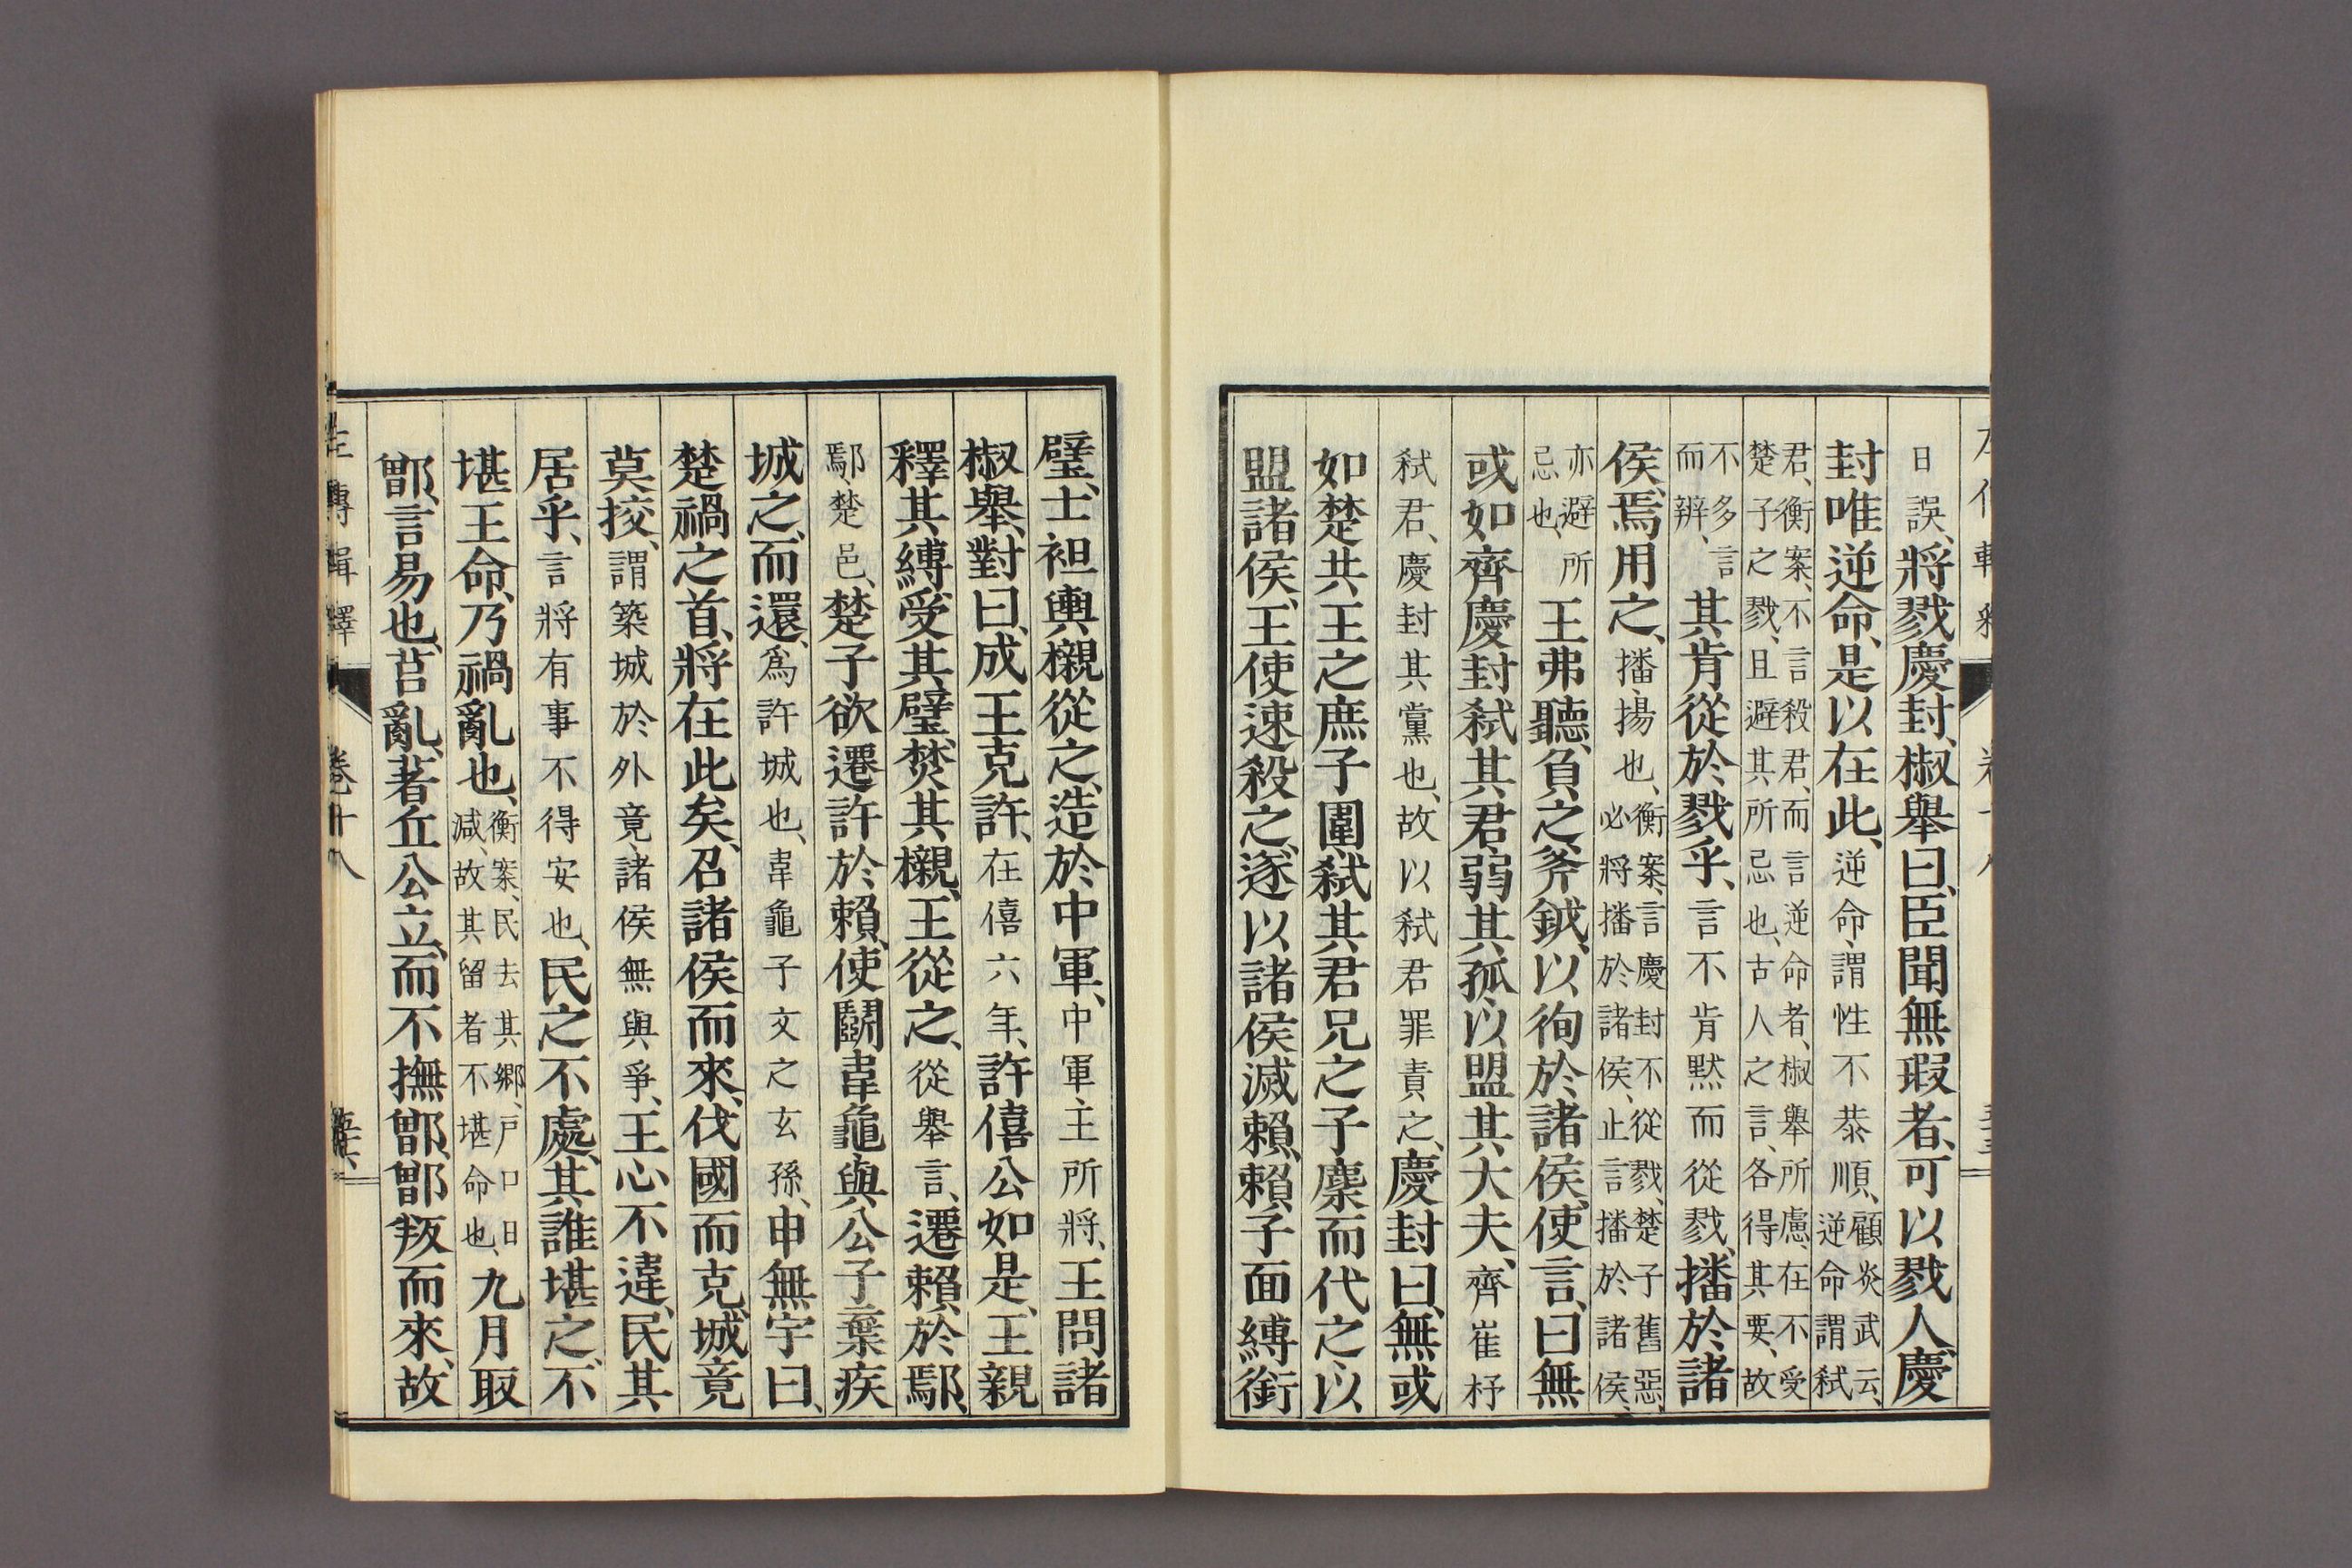 日誤、將戮慶封、椒舉曰、臣聞無瑕者、可以戮人、慶
封唯逆命、是以在此、逆命、謂性不恭順、顧炎武云、逆命謂弒
君、衡案、不言殺君、而言逆命者、椒舉所慮、在不受楚子之戮、且避其所忌也、古人之言、各得其要、故
不多言而辨、其肯從於戮乎、言不肯默而從戮、播於諸
侯、焉用之、播、揚也、衡案、言慶封不從戮、楚子舊惡、必將播於諸侯、止言播於諸侯、
亦避所忌也、王弗聽、負之斧鉞、以徇於諸侯、使言、曰無
或如齊慶封弒其君、弱其孤、以盟其大夫、齊崔杼
弒君、慶封其黨也、故以弒君罪責之、慶封曰、無或
如楚共王之庶子圍、弒其君兄之子麇而代之、以
盟諸侯、王使速殺之、遂以諸侯滅賴、賴子面縛銜
璧、士袒輿櫬從之、造於中軍、中軍、主所將、王問諸
椒舉、對曰、成王克許、在僖六年、許僖公如是、王親
釋其縛、受其璧、焚其櫬、王從之、從舉言、遷賴於鄢、
鄢、楚邑、楚子欲遷許於賴、使鬭韋龜與公子棄疾
城之、而還、爲許城也、韋龜子文之玄孫、申無宇曰、
楚禍之首、將在此矣、召諸侯而來、伐國而克、城竟
莫挍、謂築城於外竟、諸侯無與爭、王心不違、民其
居乎、言將有事不得安也、民之不處、其誰堪之、不
堪王命、乃禍亂也、衡案、民去其鄉、戸口日減、故其留者不堪命也、九月取
鄫、言易也、莒亂、著丘公立、而不撫鄫、鄫叛而來、故
左傳輯釋 卷十八